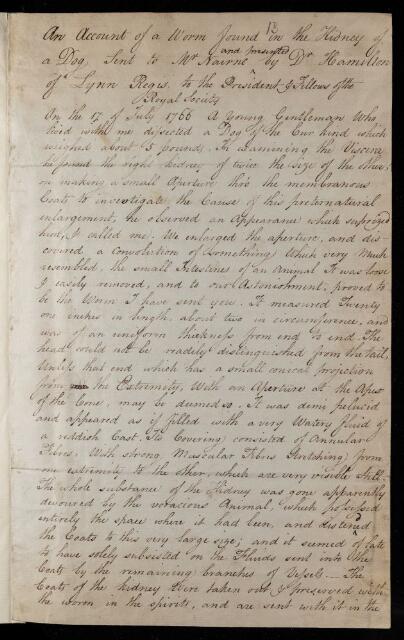 An Account of a Worm found in the Kidney of
a Dog, Sent to Mr Nairne and presented by Dr Hamilton
of Lynn Regis to the President & Fellows of the
Royal Society
On the 17 of July 1766 A Young Gentleman who
lived with me dissected a Dog of the Cur kind which
weighed about 15 pounds. In examining the Viscera
he found the right kidney of twice the size of the other,
on making a small Aperture thro the membranous
Coats to investigate the Cause of this preternatural
enlargement, he observed an Appearance which suprized
him, & called me. We enlarged the aperture, and dis-
covered a convolution of something which very much
resembled the small Intestines of an Animal It was loose
I easily removed, and to our Astonishment, proved to
be the Worm I have sent you. It measured Twenty
one inches in length, about two in circumference, and
was of an uniform thickness from end to end. The
head could not be readily distinguished from the tail,
Unless that end which has a small conical projection
from the Extremity, With an Aperture at the Apex
of the Cone, may be deemed so. It was demi pelucid
and appeared as if filled with a very Watery fluid of
a reddish Cast. Its Covering consisted of Annular
Fibres, With strong Muscular Fibres stretching from
one extremity to the other, which are very visible still.
The whole substance of the Kidney was gone apparently
devoured by the voracious Animal, which possessed
entirely the space where it had been, and distened
the Coats to this very large size; and it seemed of late
to have solely subsisted on the Fluids sent into the
Coats by the remaining branches of Vessels. The
Coats of the kidney Were taken out & preserved with
the worm in the spirits, and are sent with it in the